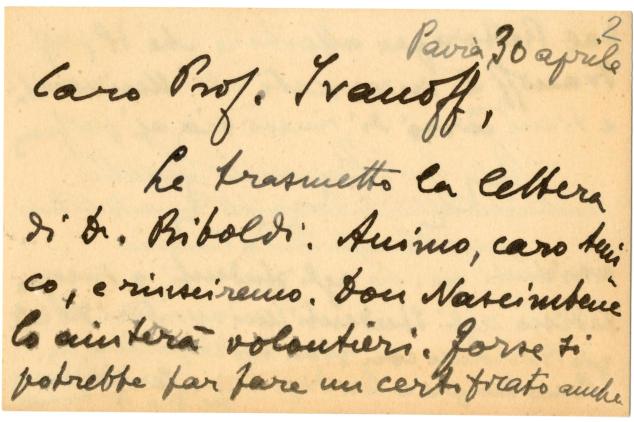 2
Pavia, 30 aprile
Caro Prof. Ivanoff,
Le trasmetto la lettera
di D. Riboldi. Animo, caro ami
co, e riusciremo. Don Nascimbene
lo aiuterà volontieri. Forse si
potrebbe far fare un certificato anche